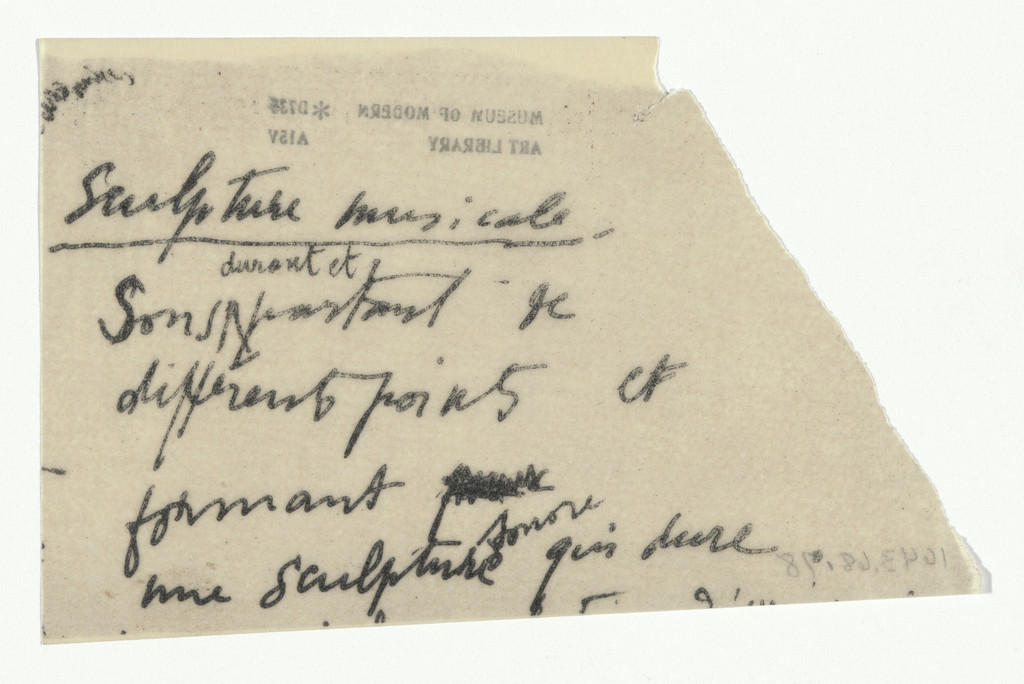 MUSEUM OF MODERN * D735
ART LIBRARY A15V
Sculpture musicale.
durant et
Sons partant de
différents points et
formant
sonore
une sculpture qui dure
1043.68.78